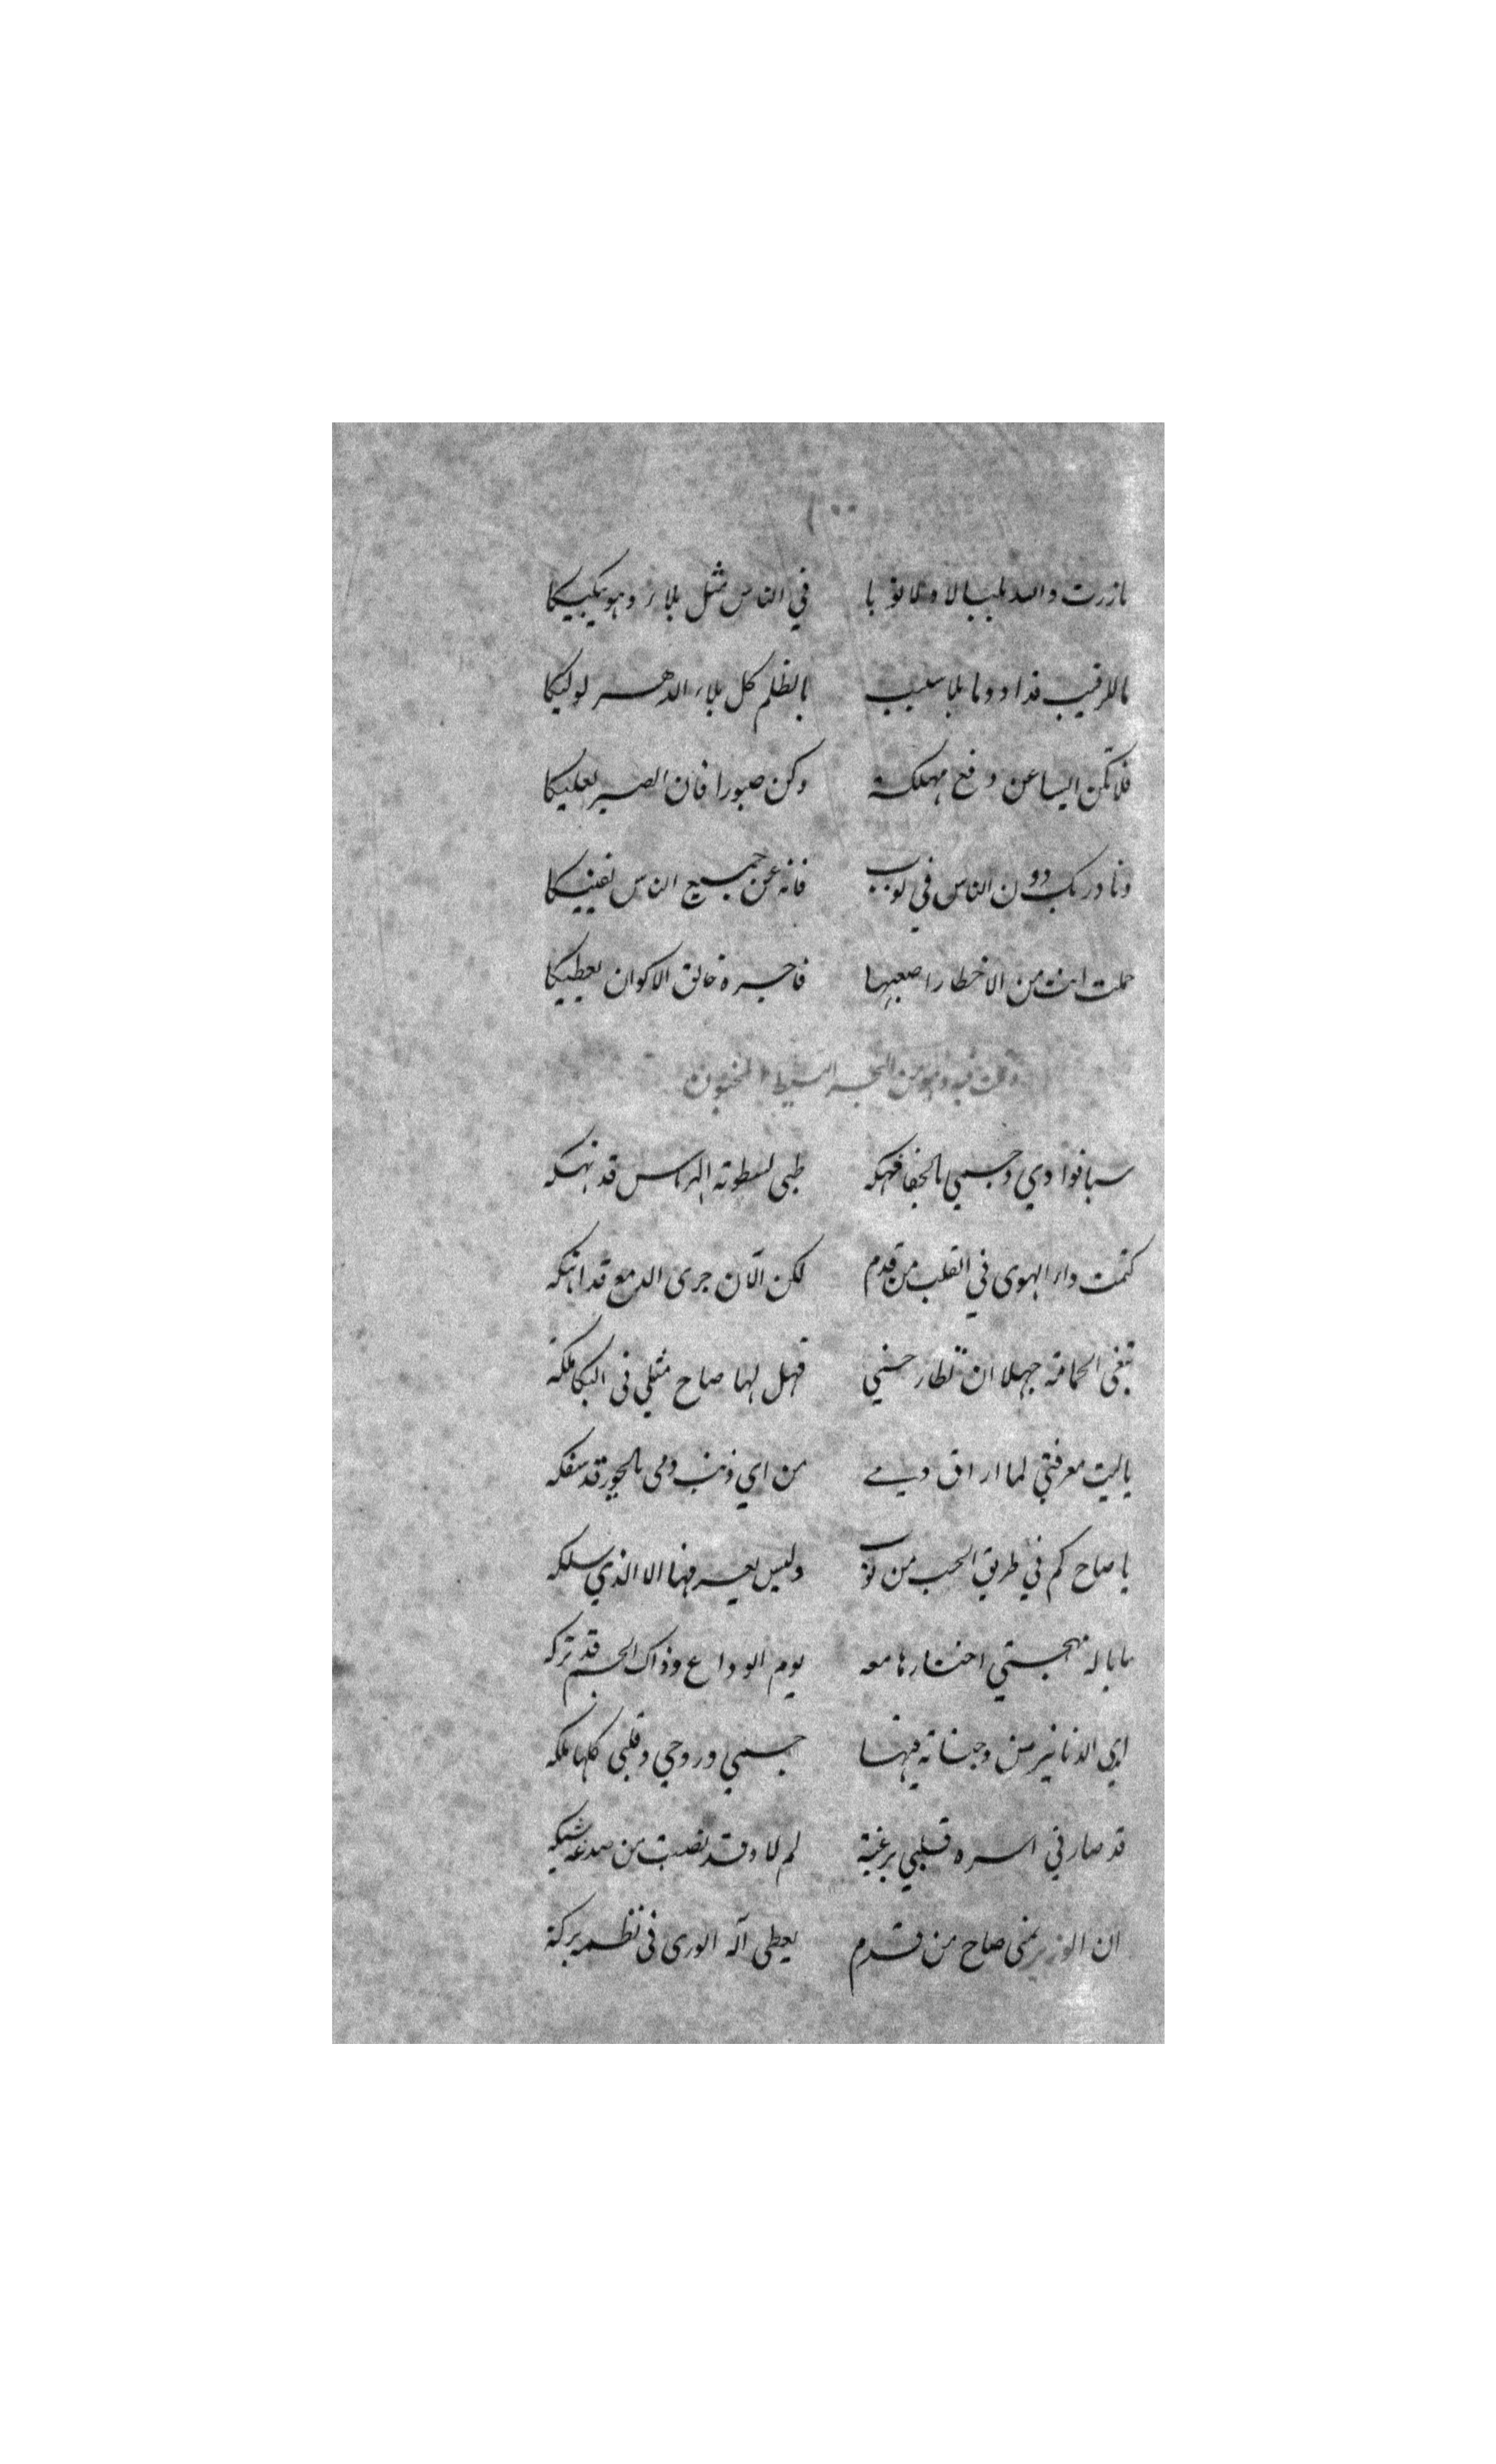 ١٠٠
مازرت والله بلبالا ولا نوبا في الناس مثل بلاء وهو يبكيكا
ما للرقيب غدا دوما بلا سبب بالظلم كل بلاء الدهر لوليكا
فلا تكن ايسا عن دفع مهلكة وكن صبورا فان الصبر يعليكا
وناد ربك دون الناس في نوب فانه عن جميع الناس يغنيكا
حملت انت من الاخطار اصعبها فاجره خالق الاكوان يعطيكا
وقلت فيه وهو من البحر البسيط المخبون
سبا فوادي وجسمي بالجفا فهكه ظبى لسطوته الهرماس قد نهكه
كتمت داء الهوى في القلب من قدم لكن الآن جرى الدمع قد هتكه
تبغى الحمامة جهلا ان تطارحني فهل لها صاح مثلي فى البكا ملكة
يا ليت معرفتي لما اراق دمي من اي ذنب دمى بالجور قد سفكه
يا صاح كم في طريق الحب من نوب وليس يعرفها الا الذي سلكه
ما باله مهجتي اختارها معه يوم الوداع وذاك الجسم قد تركه
ابي الدنانير من وجناته فبها جسمي وروحي وقلبى كلها ملكه
قد صار في اسره قلبي برغبة لم لا وقد نصبت من صدغه شبكه
ان الوزير بمنى صاح من قدم يعطى آله الورى فى نظمه بركة